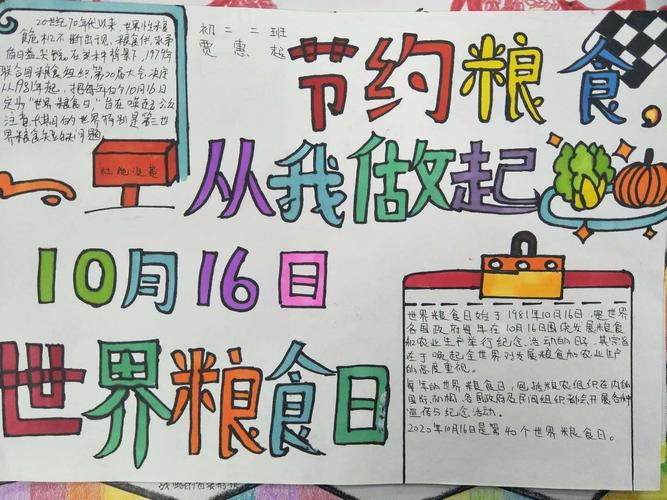 20世纪70年代以来，世界性粮食
危机不断出现，粮食供求矛
盾日益尖锐。在这种背景下，1979年
联合国粮食组织第20届大会决定
从1981年起，把每年的10月16日
定为"世界粮食日，"旨在唤起公众
注意，长期的世界特别是第三世
界粮食短缺问题。
初一二班
贾惠起
节约粮食，
从我做起
10月16日
世界粮食日
世界粮食日始于1981年10月16日，是世界
各国政府每年在10月16日围绕发展粮食
和农业生产举行纪念活动的日子，其宗旨
在于唤起全世界对发展粮食和农业生产
的高度重视。
每年的世界粮食日，包括粮农组织在内的
国际机构、各国政府及民间组织都会开展各种
宣传与纪念活动。
2020年10月16日是第40个世界粮食日。